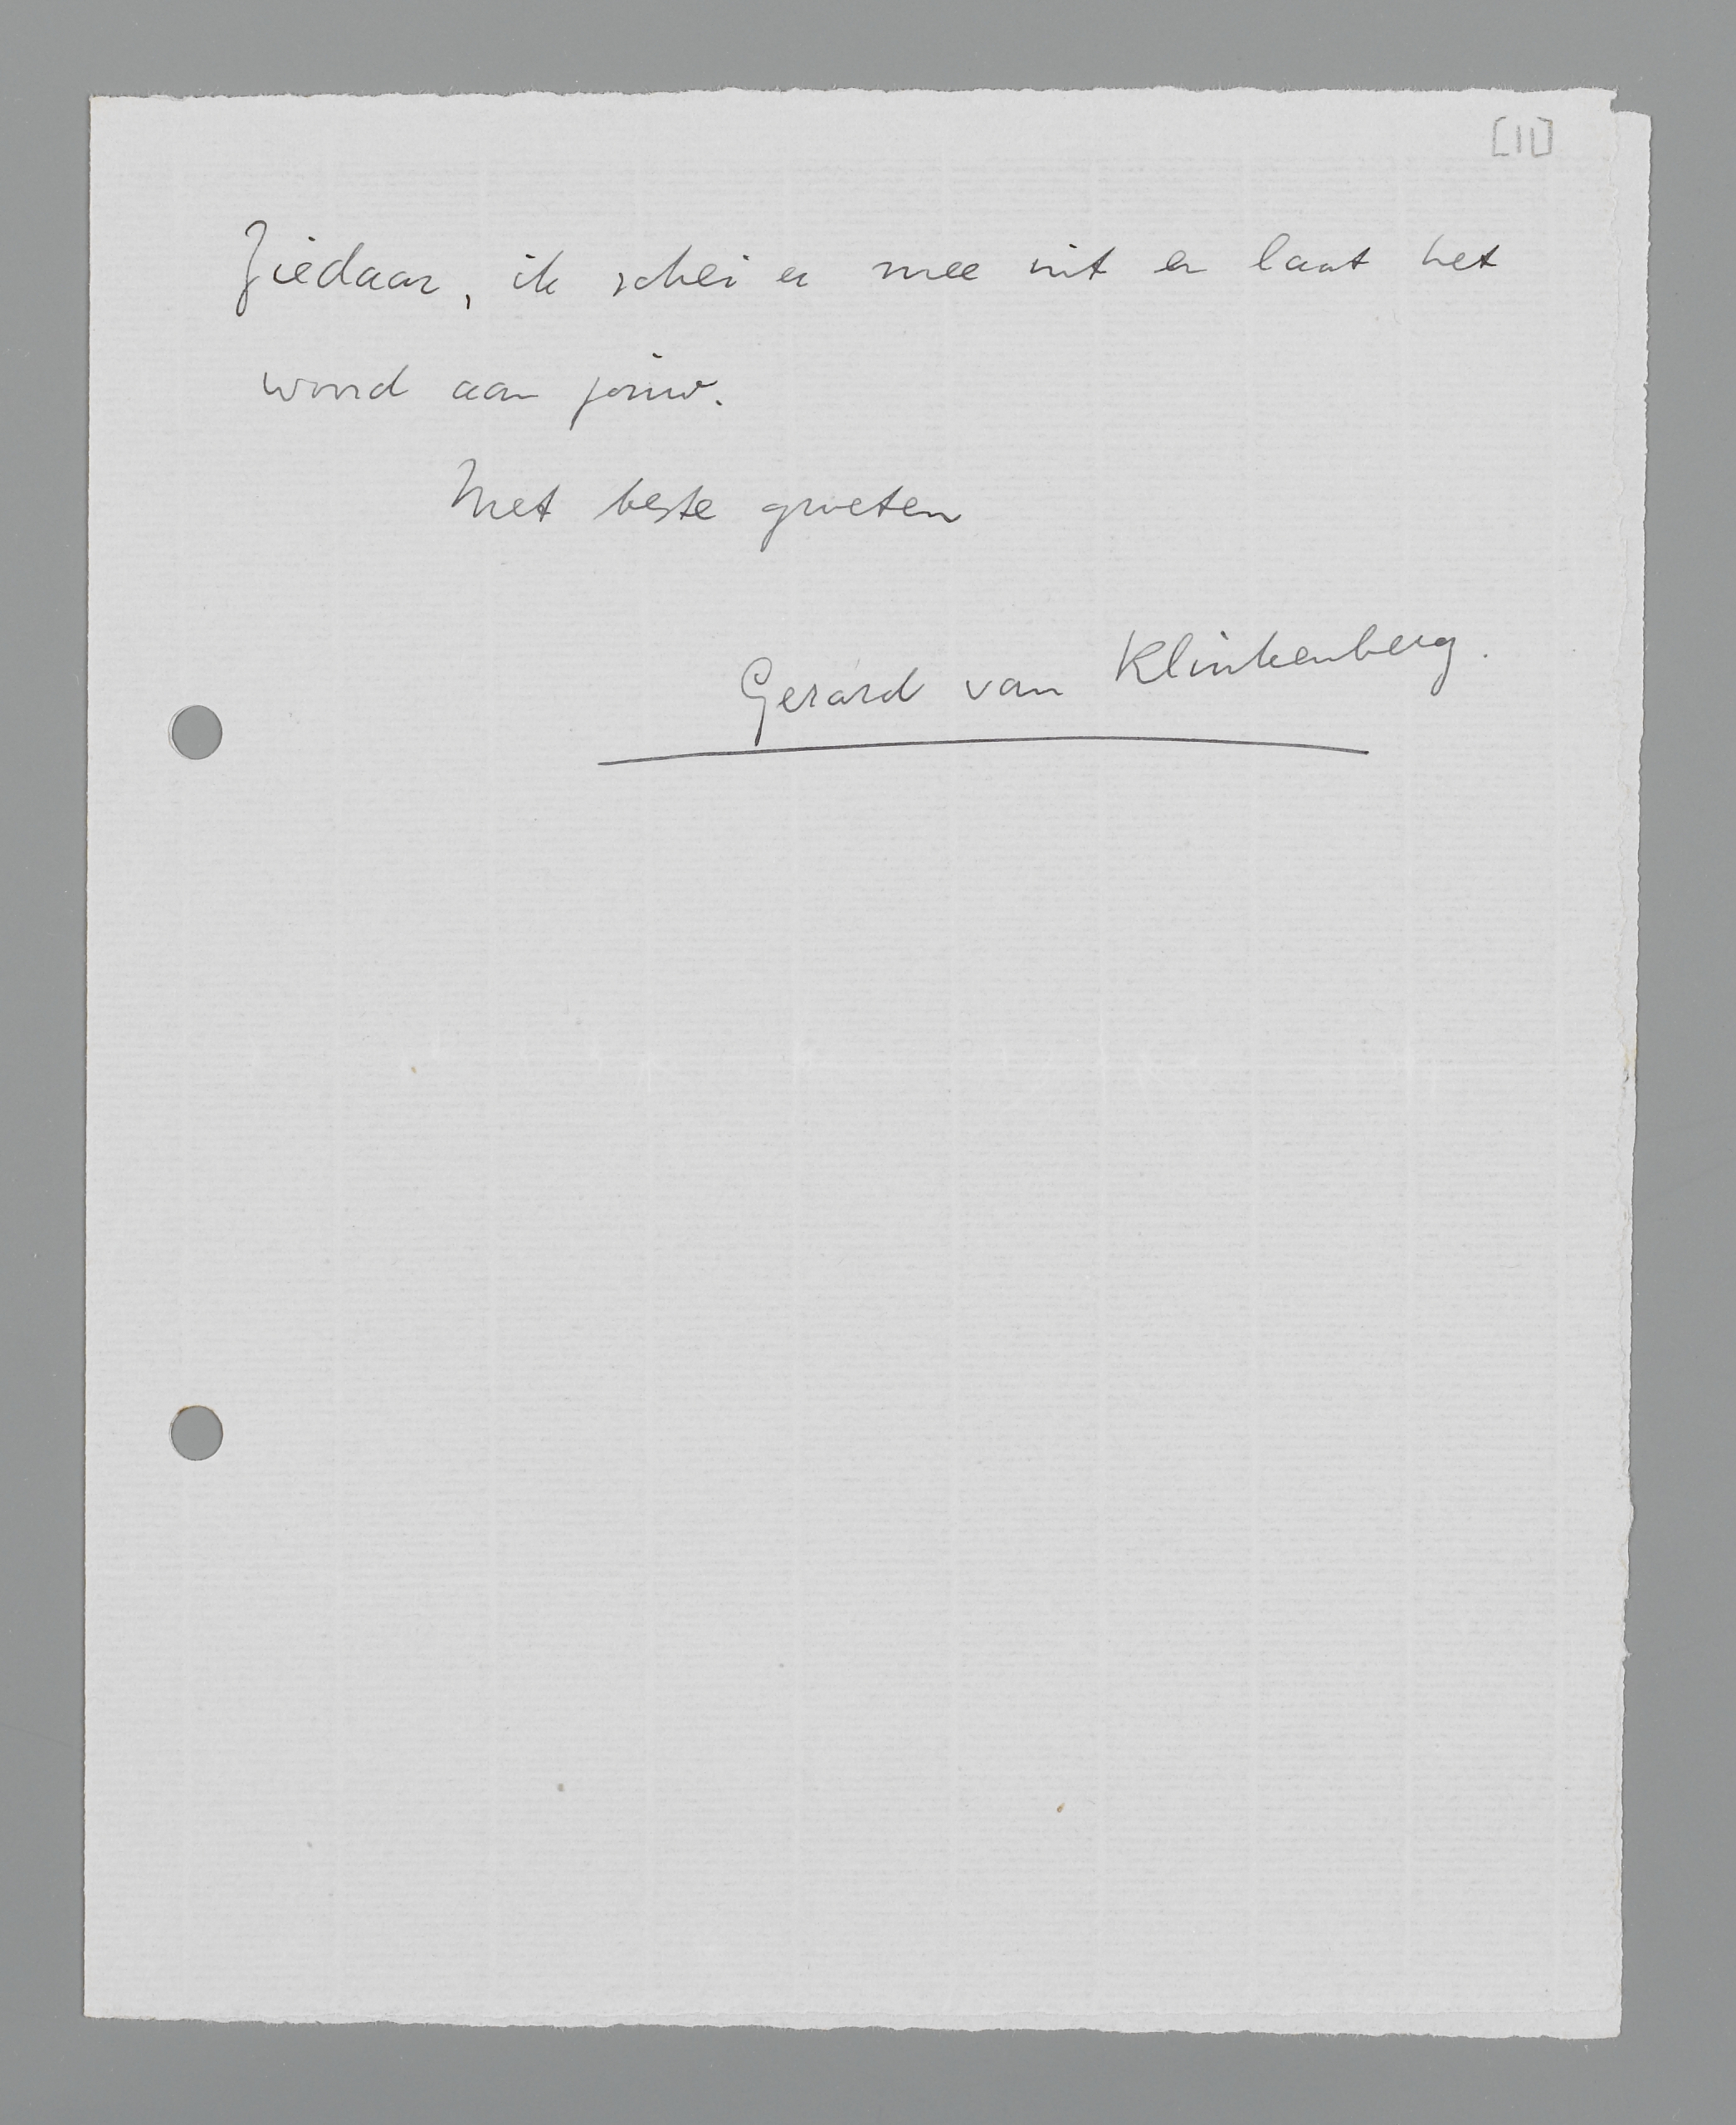 [11]
Ziedaar, ik schei er mee uit en laat het
woord aan jouw.
Met beste groeten
Gerard van Klinkenberg.